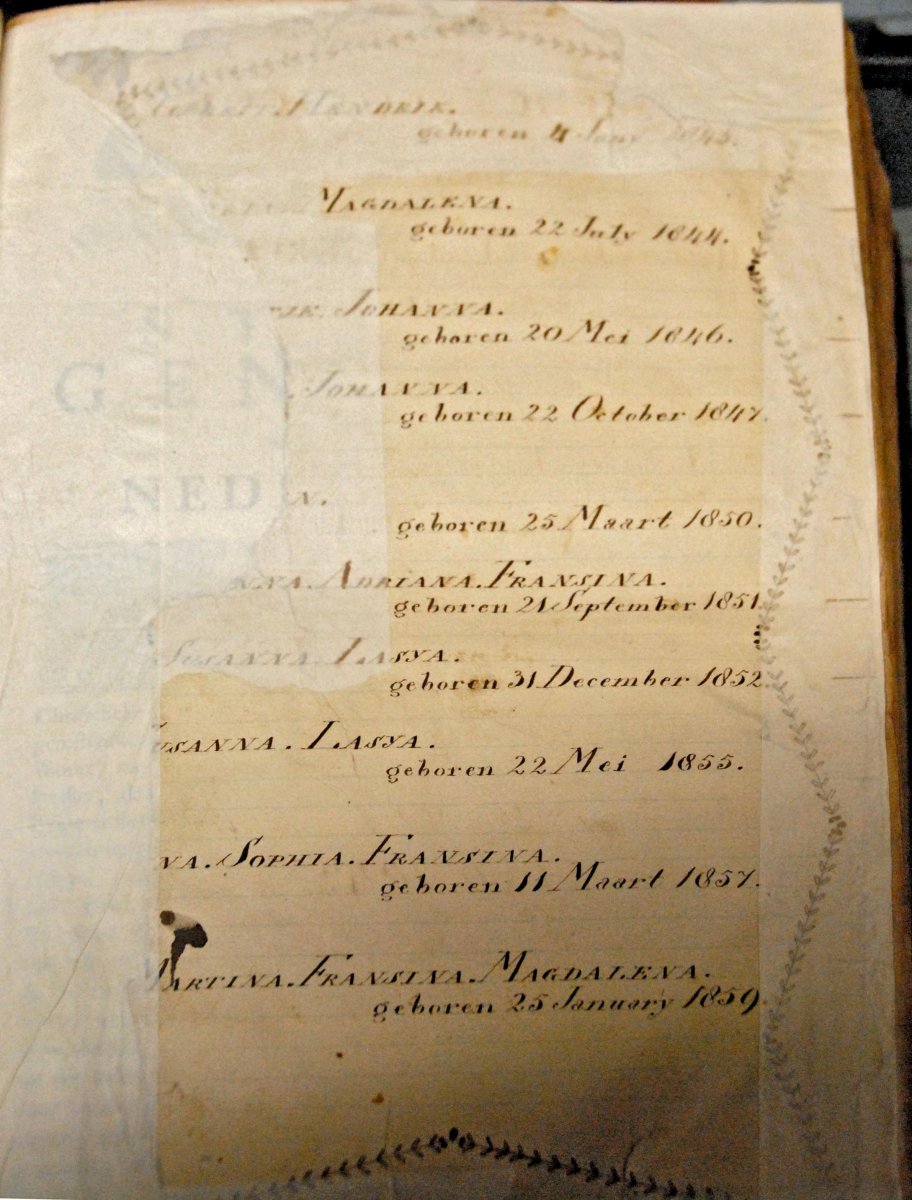 HENDRIK.
geboren 4
MAGDALENA.
geboren 22 July 1844.
JOHANNA.
geboren 20 Mei 1846.
JOHANNA.
geboren 22 October 1847.
N.
geboren 25 Maart 1850.
NNA. ADRIANA. FRANSINA.
geboren 21 September 1851
SUSANNA. LASYA.
geboren 31 December 1852
USANNA. LASYA.
geboren 22 Mei 1855.
NA. SOPHIA. FRANSINA.
geboren 11 Maart 1857.
MARTINA. FRANSINA. MAGDALENA.
geboren 25 January 1859
GEN
NED